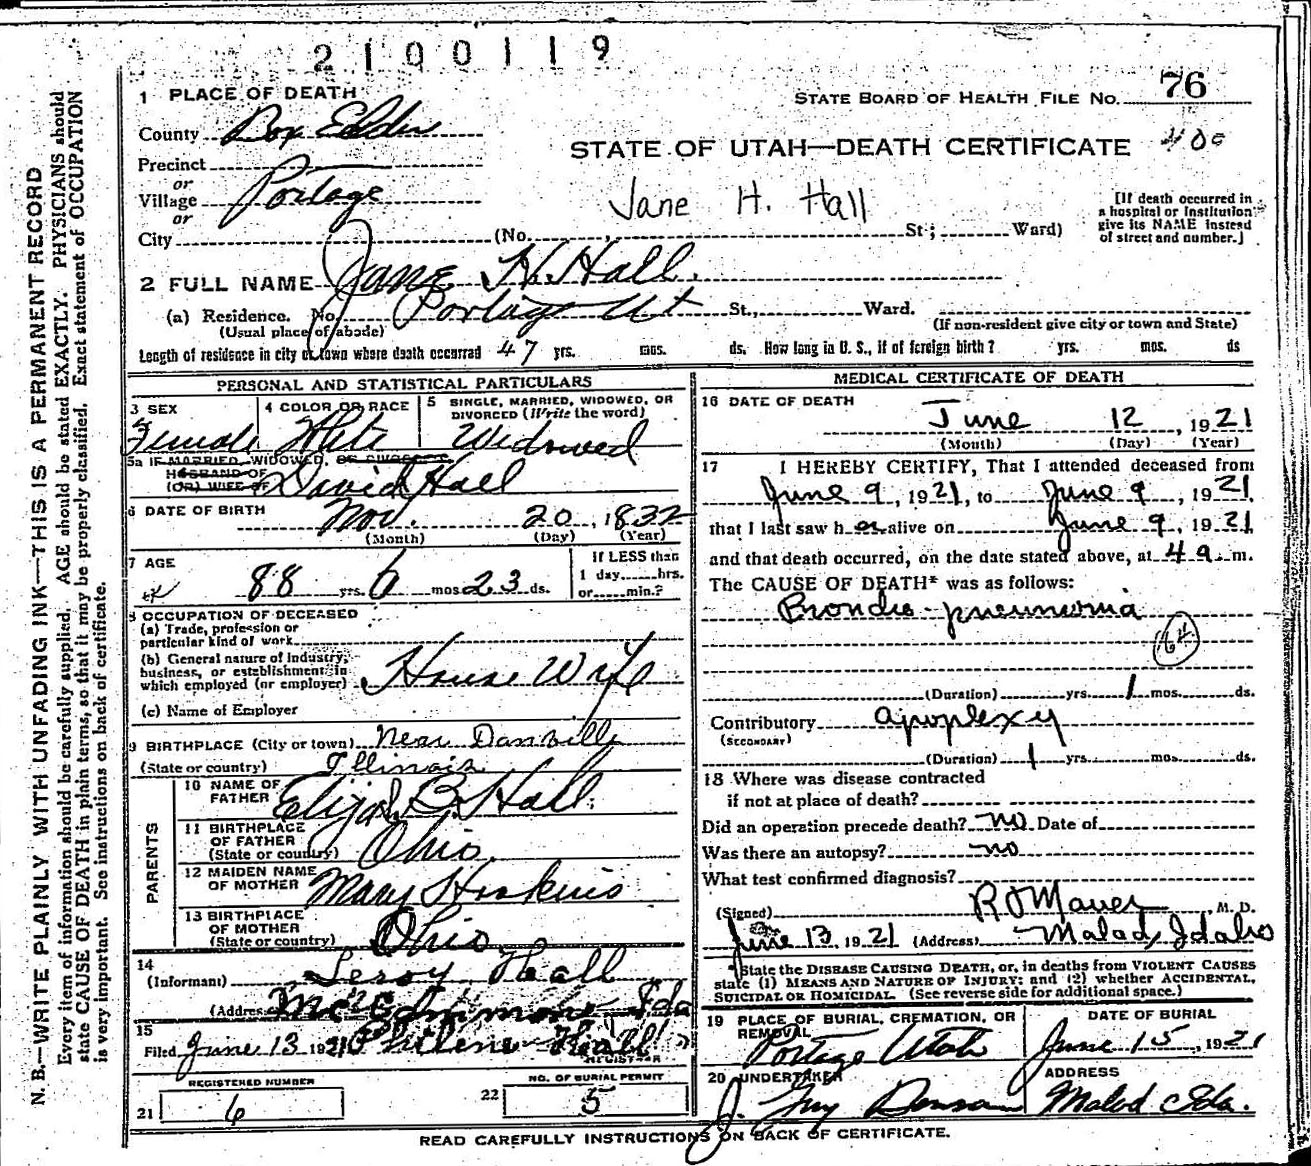 2100119
1 PLACE OF DEATH
STATE BOARD OF HEALTH FILE NO. 76
County Box Elder
STATE OF UTAH—DEATH CERTIFICATE 400
Precinct
or
Village Portage
or
Jane H. Hall
[If death occurred in a hospital or institution give its NAME instead of street and number.]
City (No. , St; Ward)
2 FULL NAME Jane H. Hall.
(a) Residence. No. Portage Ut St., Ward.
(Usual place of abode) (If non-resident give city or town and State)
Length of residence in city or town where death occurred 47 yrs. mos. ds. How long in U. S., if of foreign birth? yrs. mos. ds
PERSONAL AND STATISTICAL PARTICULARS
3 SEX
Female
4 COLOR OR RACE
White
5 SINGLE, MARRIED, WIDOWED, OR DIVORCED (Write the word)
Widowed
5a IF MARRIED, WIDOWED, OR DIVORCED
HUSBAND OF
(OR) WIFE OF David Hall
6 DATE OF BIRTH Nov. 20, 1832
(Month) (Day) (Year)
7 AGE
88 yrs. 6 mos 23 ds.
If LESS than
1 day......hrs.
or......min.?
8 OCCUPATION OF DECEASED
(a) Trade, profession or
particular kind of work
(b) General nature of industry,
business, or establishment in
which employed (or employer) House Wife
(c) Name of Employer
9 BIRTHPLACE (City or town) Near Danville
(State or country) Illinois
PARENTS
10 NAME OF
FATHER Elijah G. Hall
11 BIRTHPLACE
OF FATHER
(State or country) Ohio.
12 MAIDEN NAME
OF MOTHER Mary Hoskins
13 BIRTHPLACE
OF MOTHER
(State or country) Ohio
14
(Informant) Leroy Hall
(Address Ida
15
Filed June 13 1921 Philene Hall
REGISTRAR
REGISTERED NUMBER
21 6
NO. OF BURIAL PERMIT
22 5
MEDICAL CERTIFICATE OF DEATH
16 DATE OF DEATH
June 12, 1921
(Month) (Day) (Year)
17 I HEREBY CERTIFY, That I attended deceased from
June 9, 1921, to June 9, 1921
that I last saw h er alive on June 9, 1921
and that death occurred, on the date stated above, at 4 a. m.
The CAUSE OF DEATH* was as follows:
Broncho-pneumonia
64
(Duration) yrs. 1 mos. ds.
Contributory apoplexy
(SECONDARY)
(Duration) 1 yrs. mos. ds.
18 Where was disease contracted
if not at place of death?
Did an operation precede death? no Date of
Was there an autopsy? no
What test confirmed diagnosis?
(Signed) M. D.
June 13, 1921 (Address) Malad, Idaho
*State the DISEASE CAUSING DEATH, or, in deaths from VIOLENT CAUSES
state (1) MEANS AND NATURE OF INJURY; and (2) whether ACCIDENTAL,
SUICIDAL OR HOMICIDAL. (See reverse side for additional space.)
19 PLACE OF BURIAL, CREMATION, OR
REMOVAL
Portage Utah
DATE OF BURIAL
June 15, 1921
20 UNDERTAKER
J. Guy Benson
ADDRESS
Malad Ida.
READ CAREFULLY INSTRUCTIONS ON BACK OF CERTIFICATE.
N. B.—WRITE PLAINLY WITH UNFADING INK—THIS IS A PERMANENT RECORD
Every item of information should be carefully supplied. AGE should be stated EXACTLY. PHYSICIANS should
state CAUSE OF DEATH in plain terms, so that it may be properly classified. Exact statement of OCCUPATION
is very important. See instructions on back of certificate.